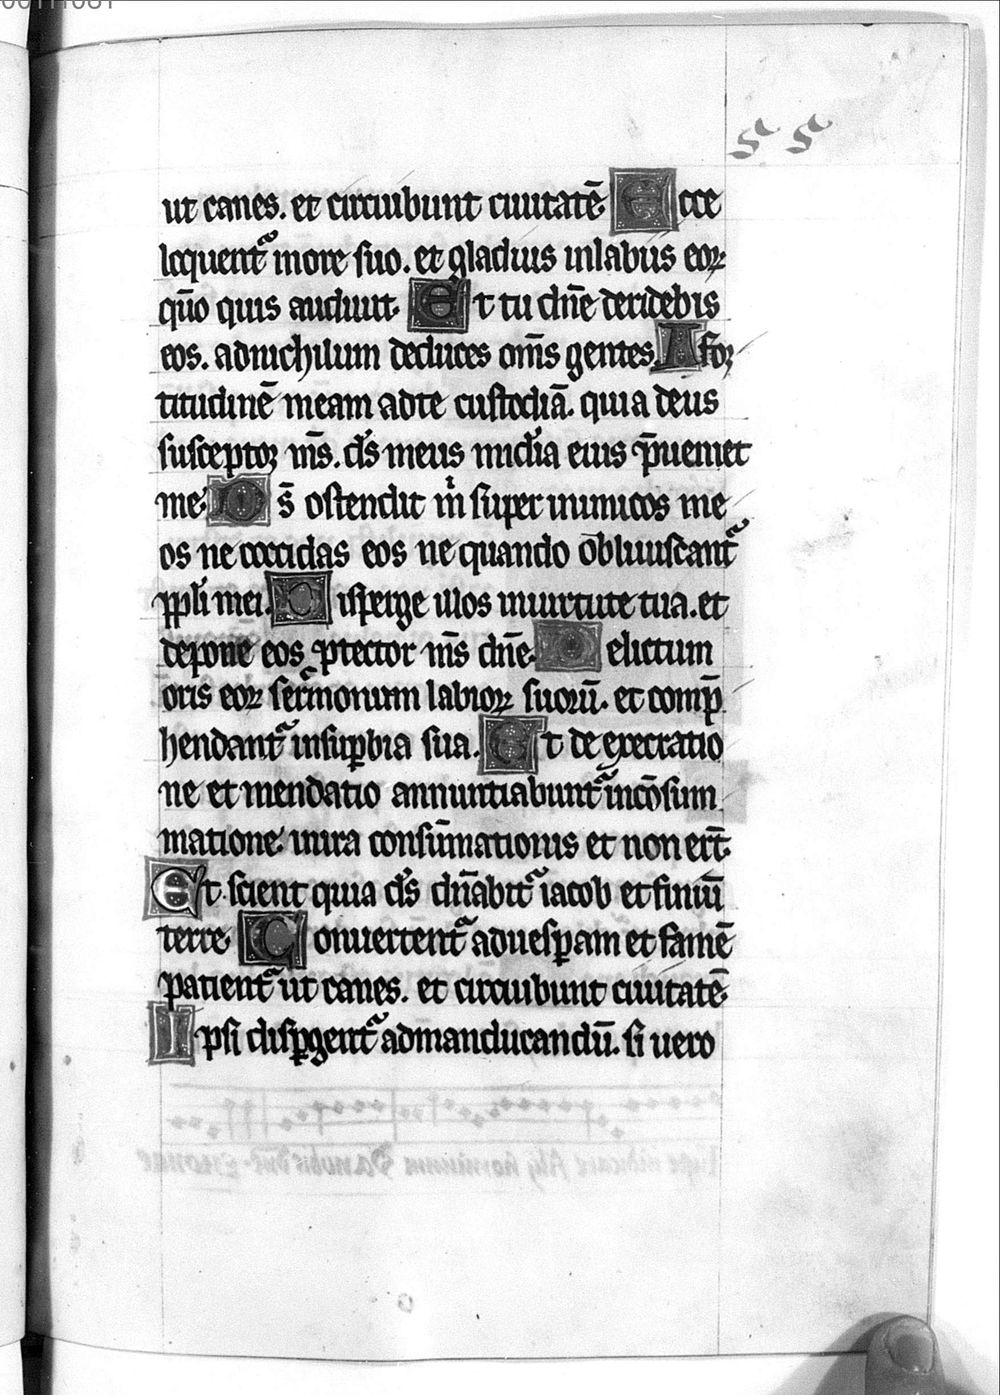 55
ut canes. et circuibunt ciuitatē. Ecce
loquent᷑ more suo. et gladius inlabiis eoꝝ
qm̄o quis audiuit. Et tu dn̄e deridebis
eos. adnichilum deduces om̄s gentes. A for
titudinē meam adte custodiā. quia deus
susceptor m̄s. ds̄ meus mic̄dia eius p̄ueniet
me. Ds̄ ostendit m̄ super inimicos me
os ne occidas eos ne quando obliuiscant᷑
ppl̄i mei. Disperge illos inuirtute tua. et
depone eos ꝓtector m̄s dn̄e. Delictum
oris eoꝝ sermonum labioꝝ suorū. et comp̄
hendant᷑ insuꝑbia sua. Et de execratio
ne et mendatio annuntiabunt᷑ incōsum
matione. inira consūmationis et non ert̄.
Et scient quia ds̄ dn̄abit᷑ iacob et finiū
terre. Conuertent᷑ aduesꝑam et famē
patient᷑ ut canes. et circuibunt ciuitatē.
Ipsi disꝑgent᷑ admanducandū. si uero